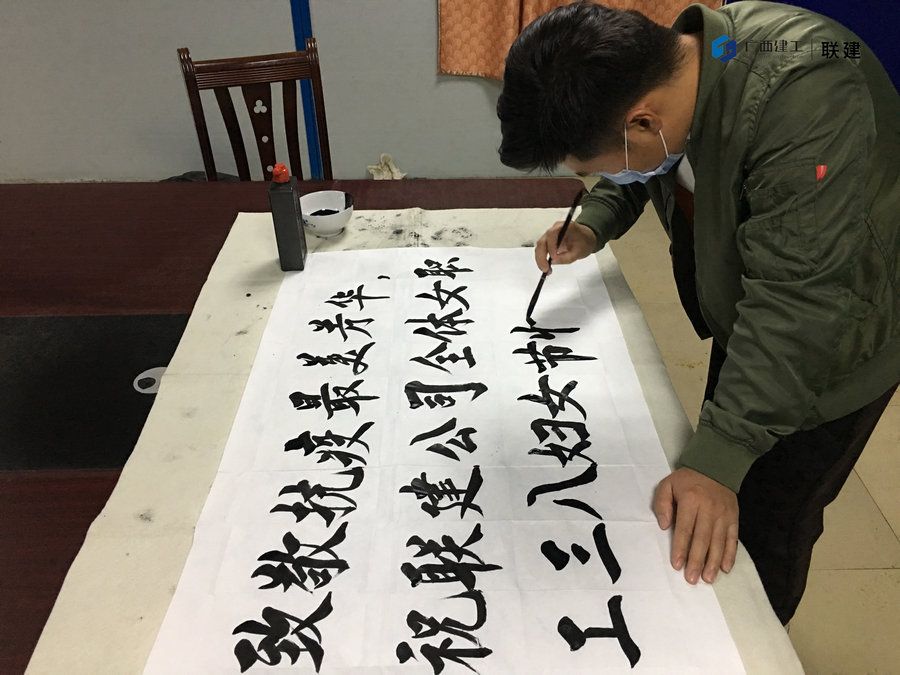 广西建工 联建
致敬抗疫最美芳华，
祝联建公司全体女职
工三八妇女节忄